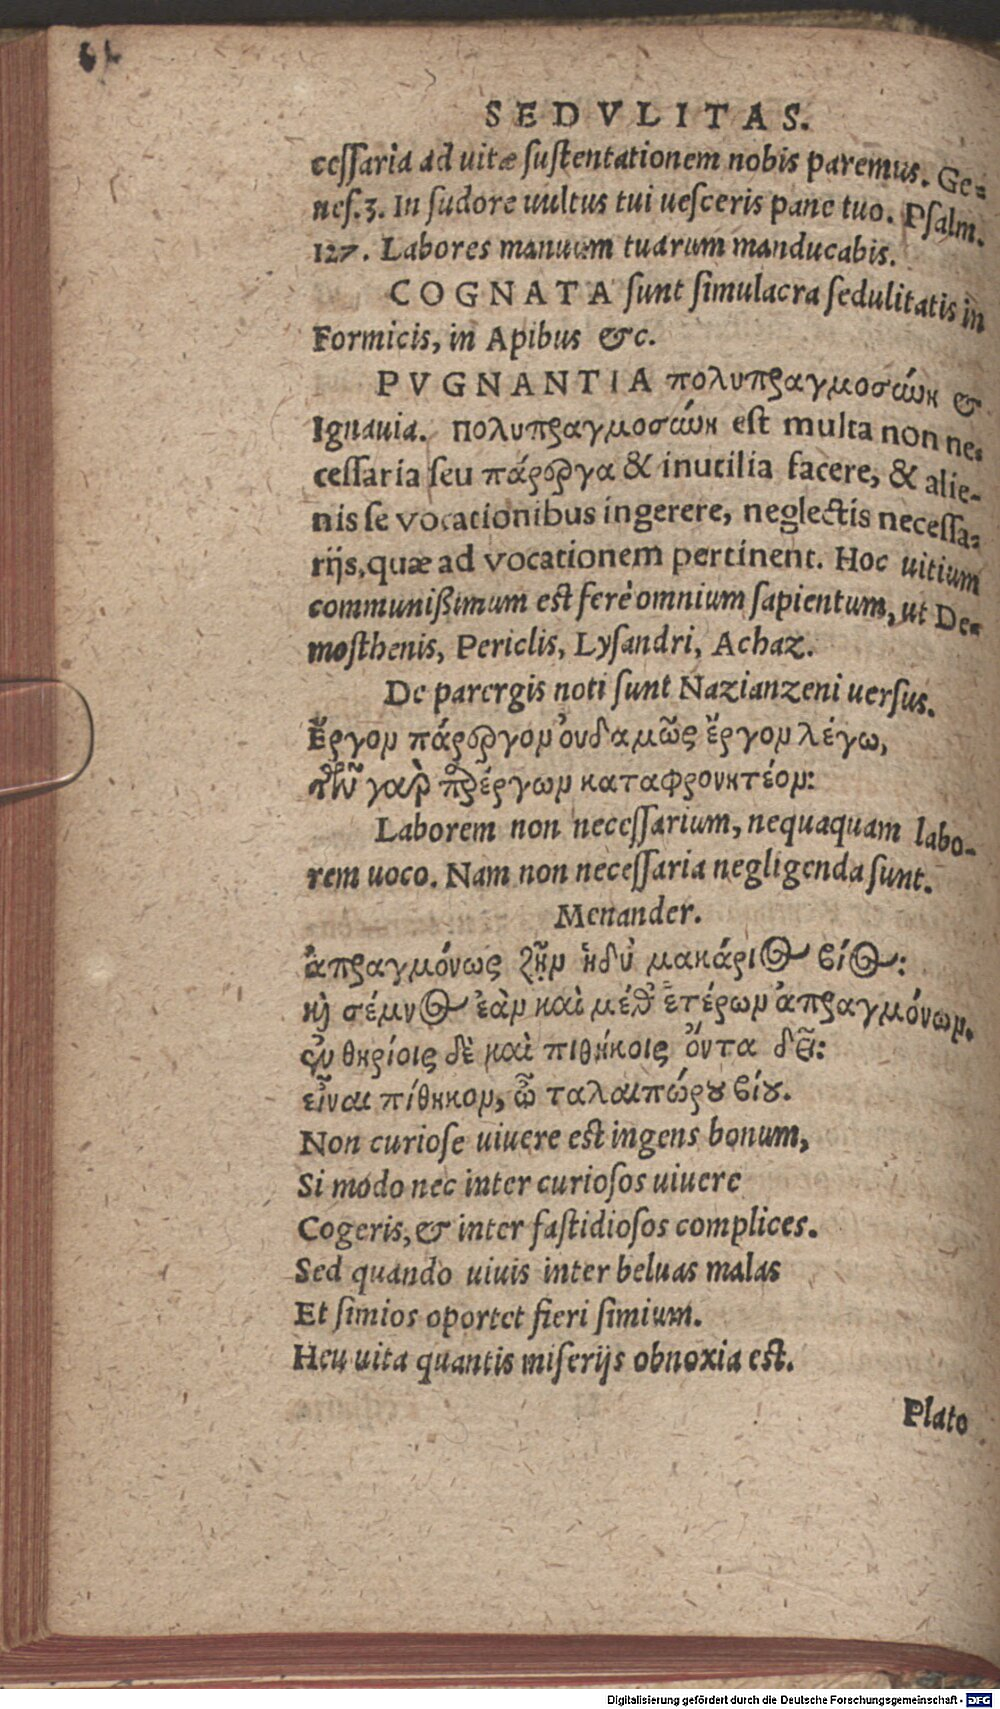 SEDVLITAS.
cessaria ad uitæ sustentationem nobis paremus. Ge=
nes.3. In sudore uultus tui uesceris pane tuo. Psalm.
127. Labores manuum tuarum manducabis.
COGNATA sunt simulacra sedulitatis in
Formicis, in Apibus &c.
PVGNANTIA πολυπραγμοσύνη &
Ignauia. πολυπραγμοσύνη est multa non ne=
cessaria seu πάρεργα & inutilia facere, & alie-
nis se vocationibus ingerere, neglectis necessa=
rijs, quæ ad vocationem pertinent. Hoc uitium
communißimum est ferè omnium sapientum, ut De=
mosthenis, Periclis, Lysandri, Achaz.
De parergis noti sunt Nazianzeni uersus.
Ἔργον πάρεργον ὀυδαμῶς ἔργον λέγω,
τῶν γαὶρ παρέργων καταφρονητέον:
Laborem non necessarium, nequaquam labo-
rem uoco. Nam non necessaria negligenda sunt.
Menander.
ἀπραγμόνως ζῇν ἡδὺ μακάριος βίος:
καὶ σέμνος ἐὰν καὶ μέθ' ἑτέρων ἀπραγμόνων.
ἐν θηρίοις δὲ καὶ πιθήκοις ὄντα δεῖ:
εἶναι πίθηκον, ὦ ταλαιπώρου βίου.
Non curiose uiuere est ingens bonum,
Si modo nec inter curiosos uiuere
Cogeris, & inter fastidiosos complices.
Sed quando uiuis inter beluas malas
Et simios oportet fieri simium.
Heu uita quantis miserijs obnoxia est.
Plato
Digitalisierung gefördert durch die Deutsche Forschungsgemeinschaft - DFG